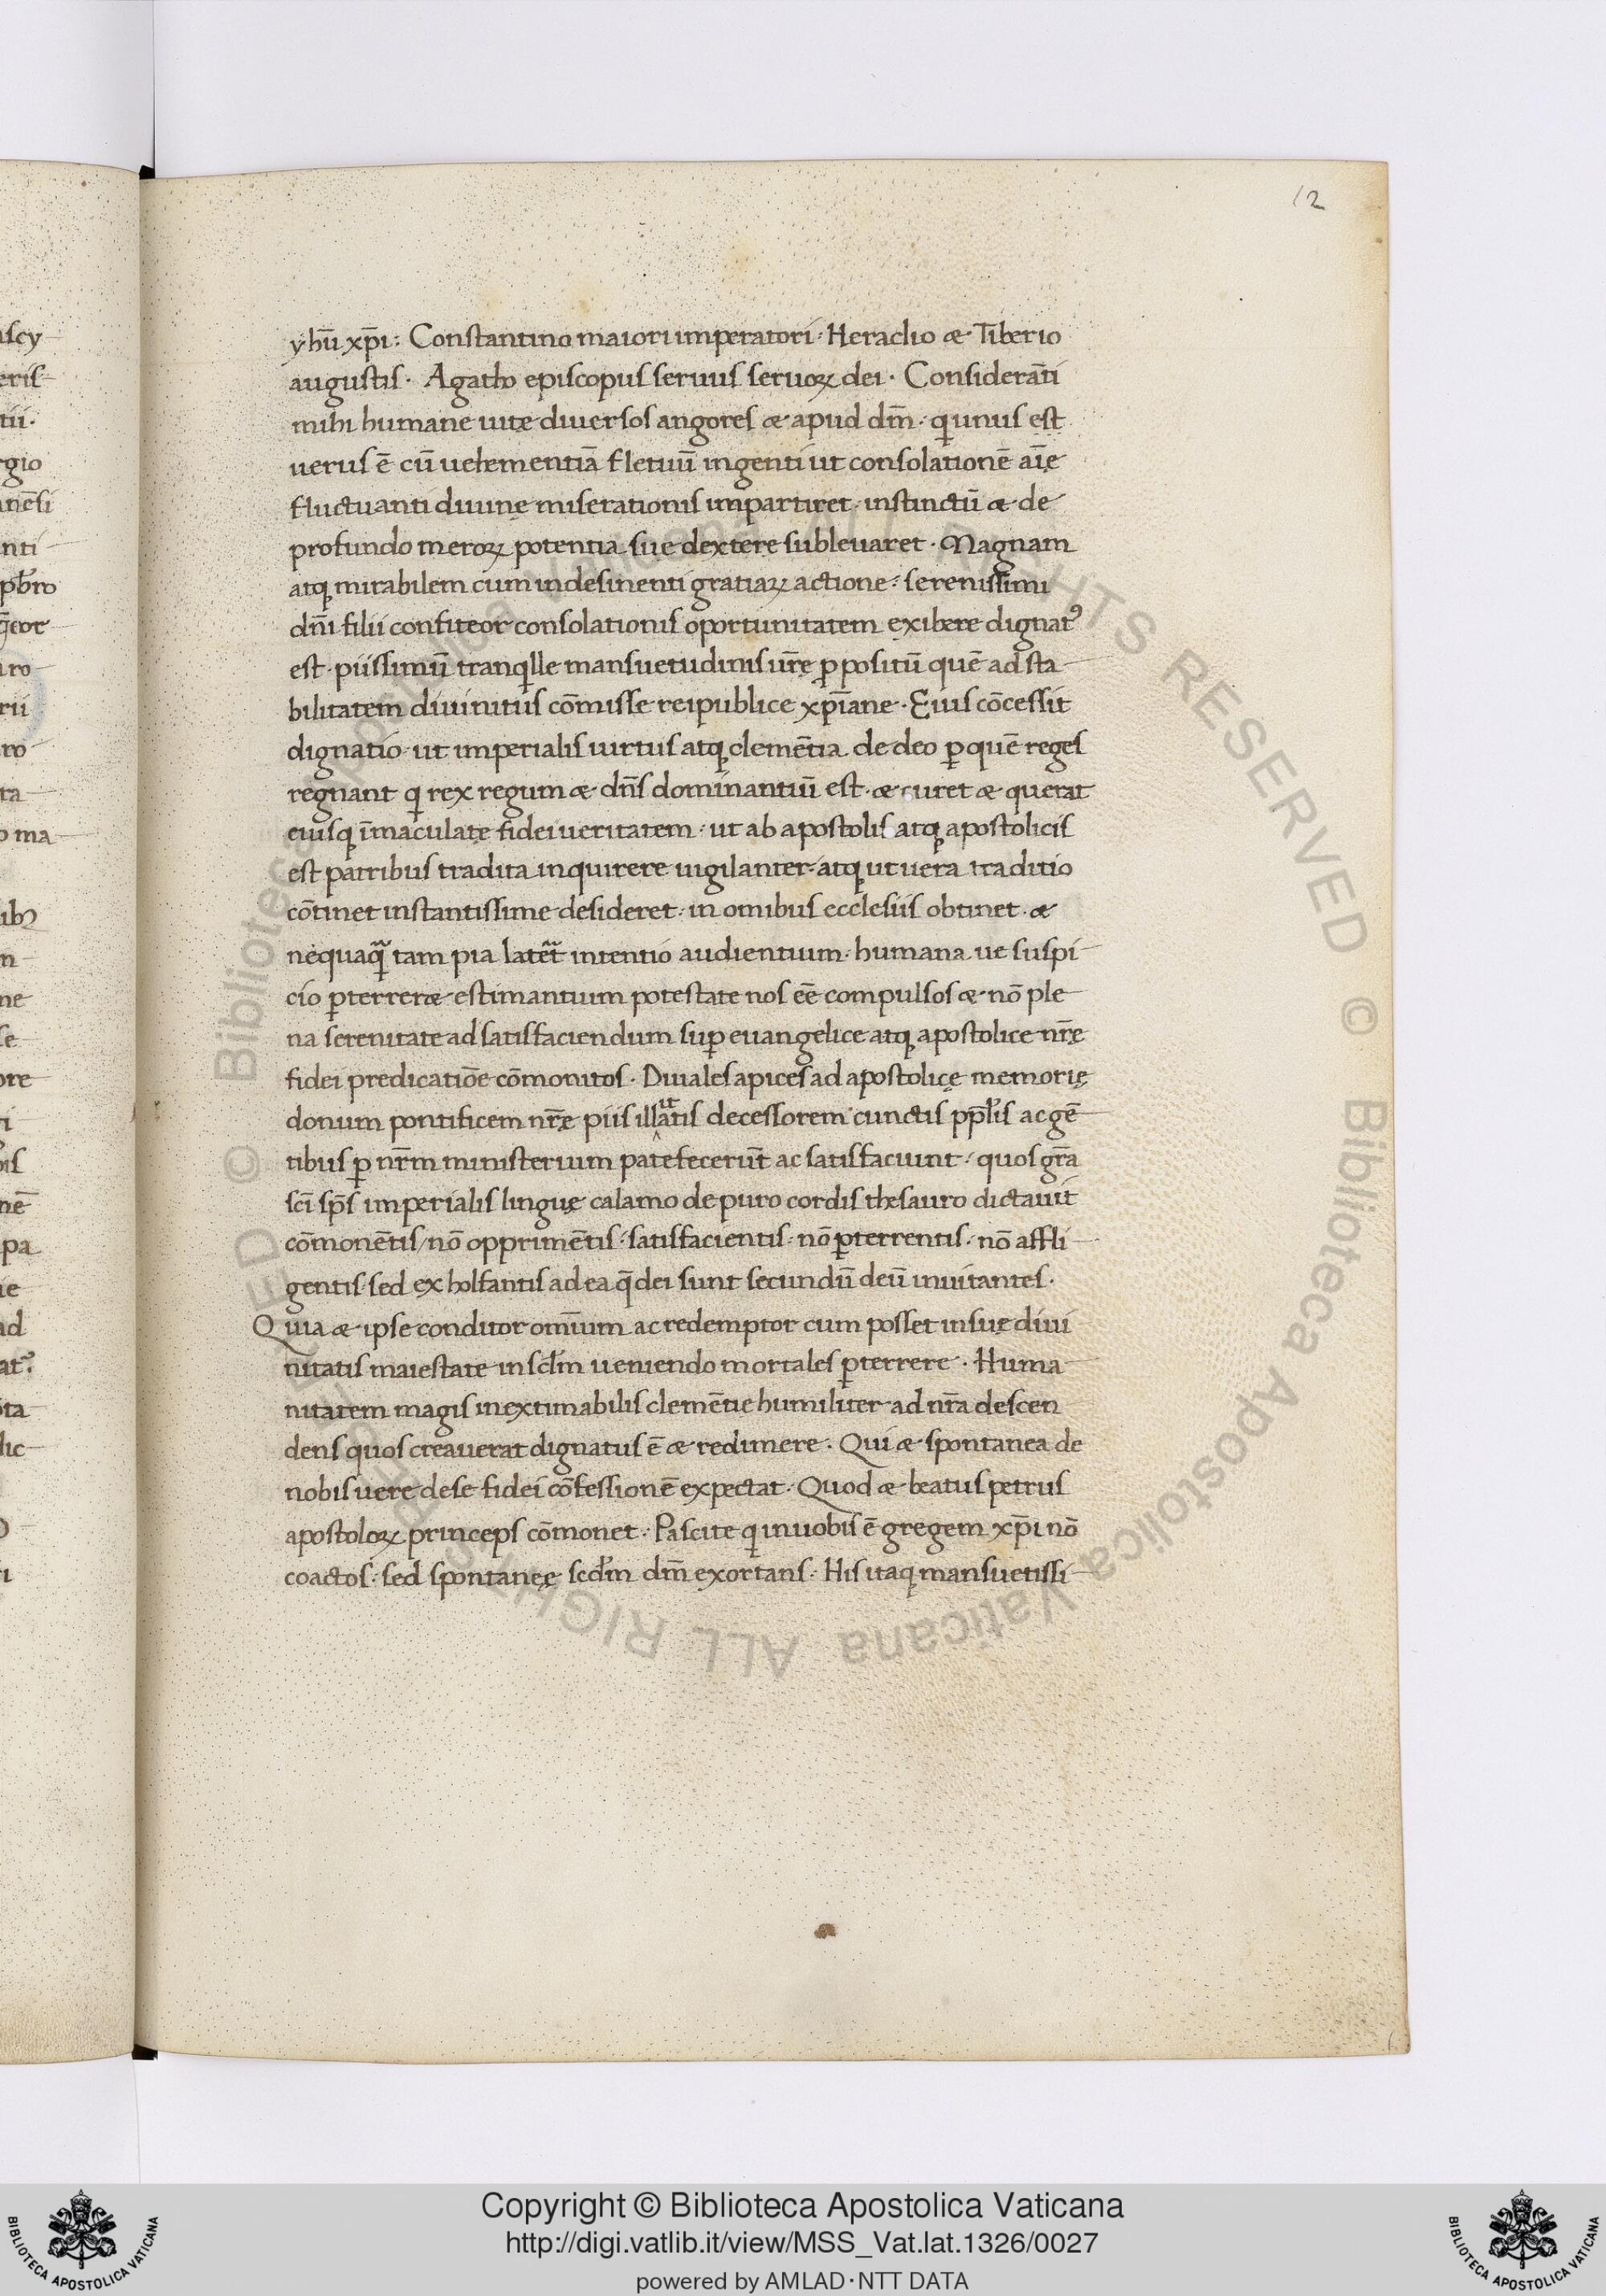 12
yhu̅ xp̅i: Constantino maiori imperatori· Heraclio & Tiberio
augustis· Agatho episcopus seruus seruoꝝ dei· Considera̅ti
mihi humane uitę diuersos angores & apud dm̅· qui unus est
uerus e̅ cu̅ uehementia̅ fletuu̅ ingenti ut consolatione̅ ai̅ę
fluctuanti diuinę miserationis impartiret· instinctu̅ & de
profundo meroꝝ potentia sue dextere subleuaret· Magnam
atqꝫ mirabilem cum indesinenti gratiaꝝ actione· serenissimi
dn̅i filii confiteor consolationis oportunitatem exibere dignatꝰ
est· piissimu̅ tranqlle mansuetudinis ur̅ę ꝓpositu̅ que̅ ad sta
bilitatem diuinitus co̅misse reipublice xp̅iane· Eius co̅cessit
dignatio· ut imperialis uirtus atqꝫ cleme̅tia de deo ꝑ que̅ reges
regnant qi rex regum & dn̅s dominantiu̅ est· & curet & querat
eiusqꝫ i̅maculatę fidei ueritatem· ut ab apostolis atqꝫ apostolicis
est patribus tradita inquirere uigilanter· atqꝫ ut uera traditio
co̅tinet instantissime desideret· in omibus ecclesiis obtinet· &
nequaq̅ tam pia late̅t intentio audientium· humana ue suspi
cio ꝑterrer& estimantium potestate nos ee̅ compulsos & no̅ ple
na serenitate ad satisfaciendum suꝑ euangelice atqꝫ apostolice nr̅ę
fidei predicatio̅e co̅monitos· Diuales apices ad apostolicę memorię
donum pontificem nr̅ę piis ills ut atis decessorem cunctis pp̅lis ac ge̅
tibus ꝑ nr̅m ministerium patefeceru̅t ac satisfaciunt· quos gr̅a
sci̅ sp̅s imperialis linguę calamo de puro cordis thesauro dictauit
co̅mone̅tis/ no̅ opprime̅tis· satisfacientis· no̅ ꝑterrentis· no̅ affli
gentis· sed ex holfantis ad ea q̅ dei sunt secundu̅ deu̅ inuitantes·
Quia & ipse conditor omi̅um ac redemptor cum posset in suę diui
nitatis maiestate in scl̅m ueniendo mortales ꝑterrere· Huma
nitatem magis inextimabilis cleme̅tie humiliter ad nr̅a descen
dens quos creauerat dignatus e̅ & redimere· Qui & spontanea de
nobis uere de se fidei co̅fessione̅ expectat· Quod & beatus petrus
apostoloꝝ princeps co̅monet· Pascite qi in uobis e̅ gregem xp̅i no̅
coactos· sed spontanęę scd̅m dm̅ exortans· His itaqꝫ mansuetissi
Copyright © Biblioteca Apostolica Vaticana
http://digi.vatlib.it/view/MSS_Vat.lat.1326/0027
powered by AMLAD·NTT DATA